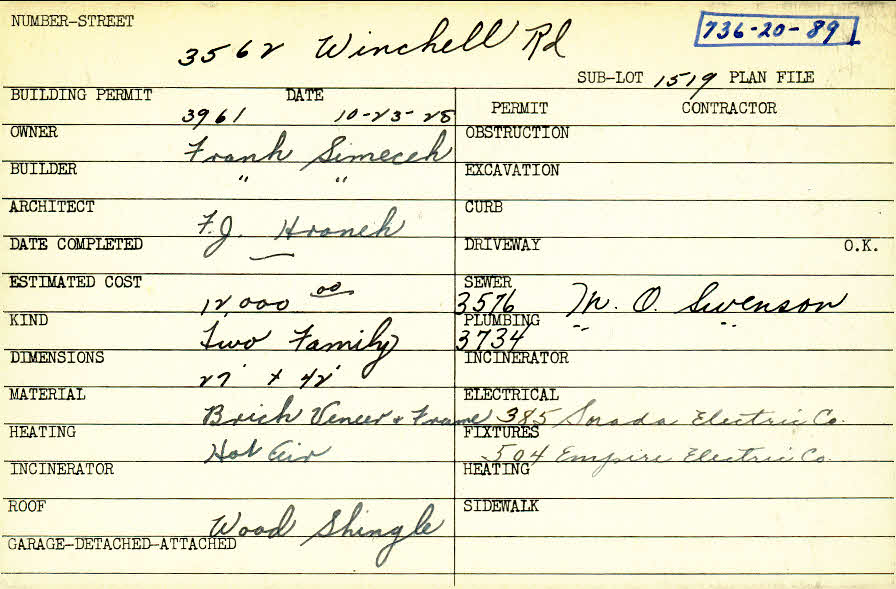 NUMBER-STREET
3562 Winchell Rd
736-20-89
SUB-LOT 1519 PLAN FILE
BUILDING PERMIT 3961 DATE 10-23-28
PERMIT CONTRACTOR
OWNER Frank Simecek
OBSTRUCTION
BUILDER " "
EXCAVATION
ARCHITECT F.J. Hranek
CURB
DATE COMPLETED —
DRIVEWAY O.K.
ESTIMATED COST 12,000 00
SEWER 3576 M. O. Swenson
KIND Two Family
PLUMBING 3734 " "
DIMENSIONS 27' x 42'
INCINERATOR
MATERIAL Brick Veneer + Frame
ELECTRICAL 385 Electric Co.
HEATING Hot Air
FIXTURES 504 Empire Electric Co.
INCINERATOR
HEATING
ROOF Wood Shingle
SIDEWALK
GARAGE-DETACHED-ATTACHED